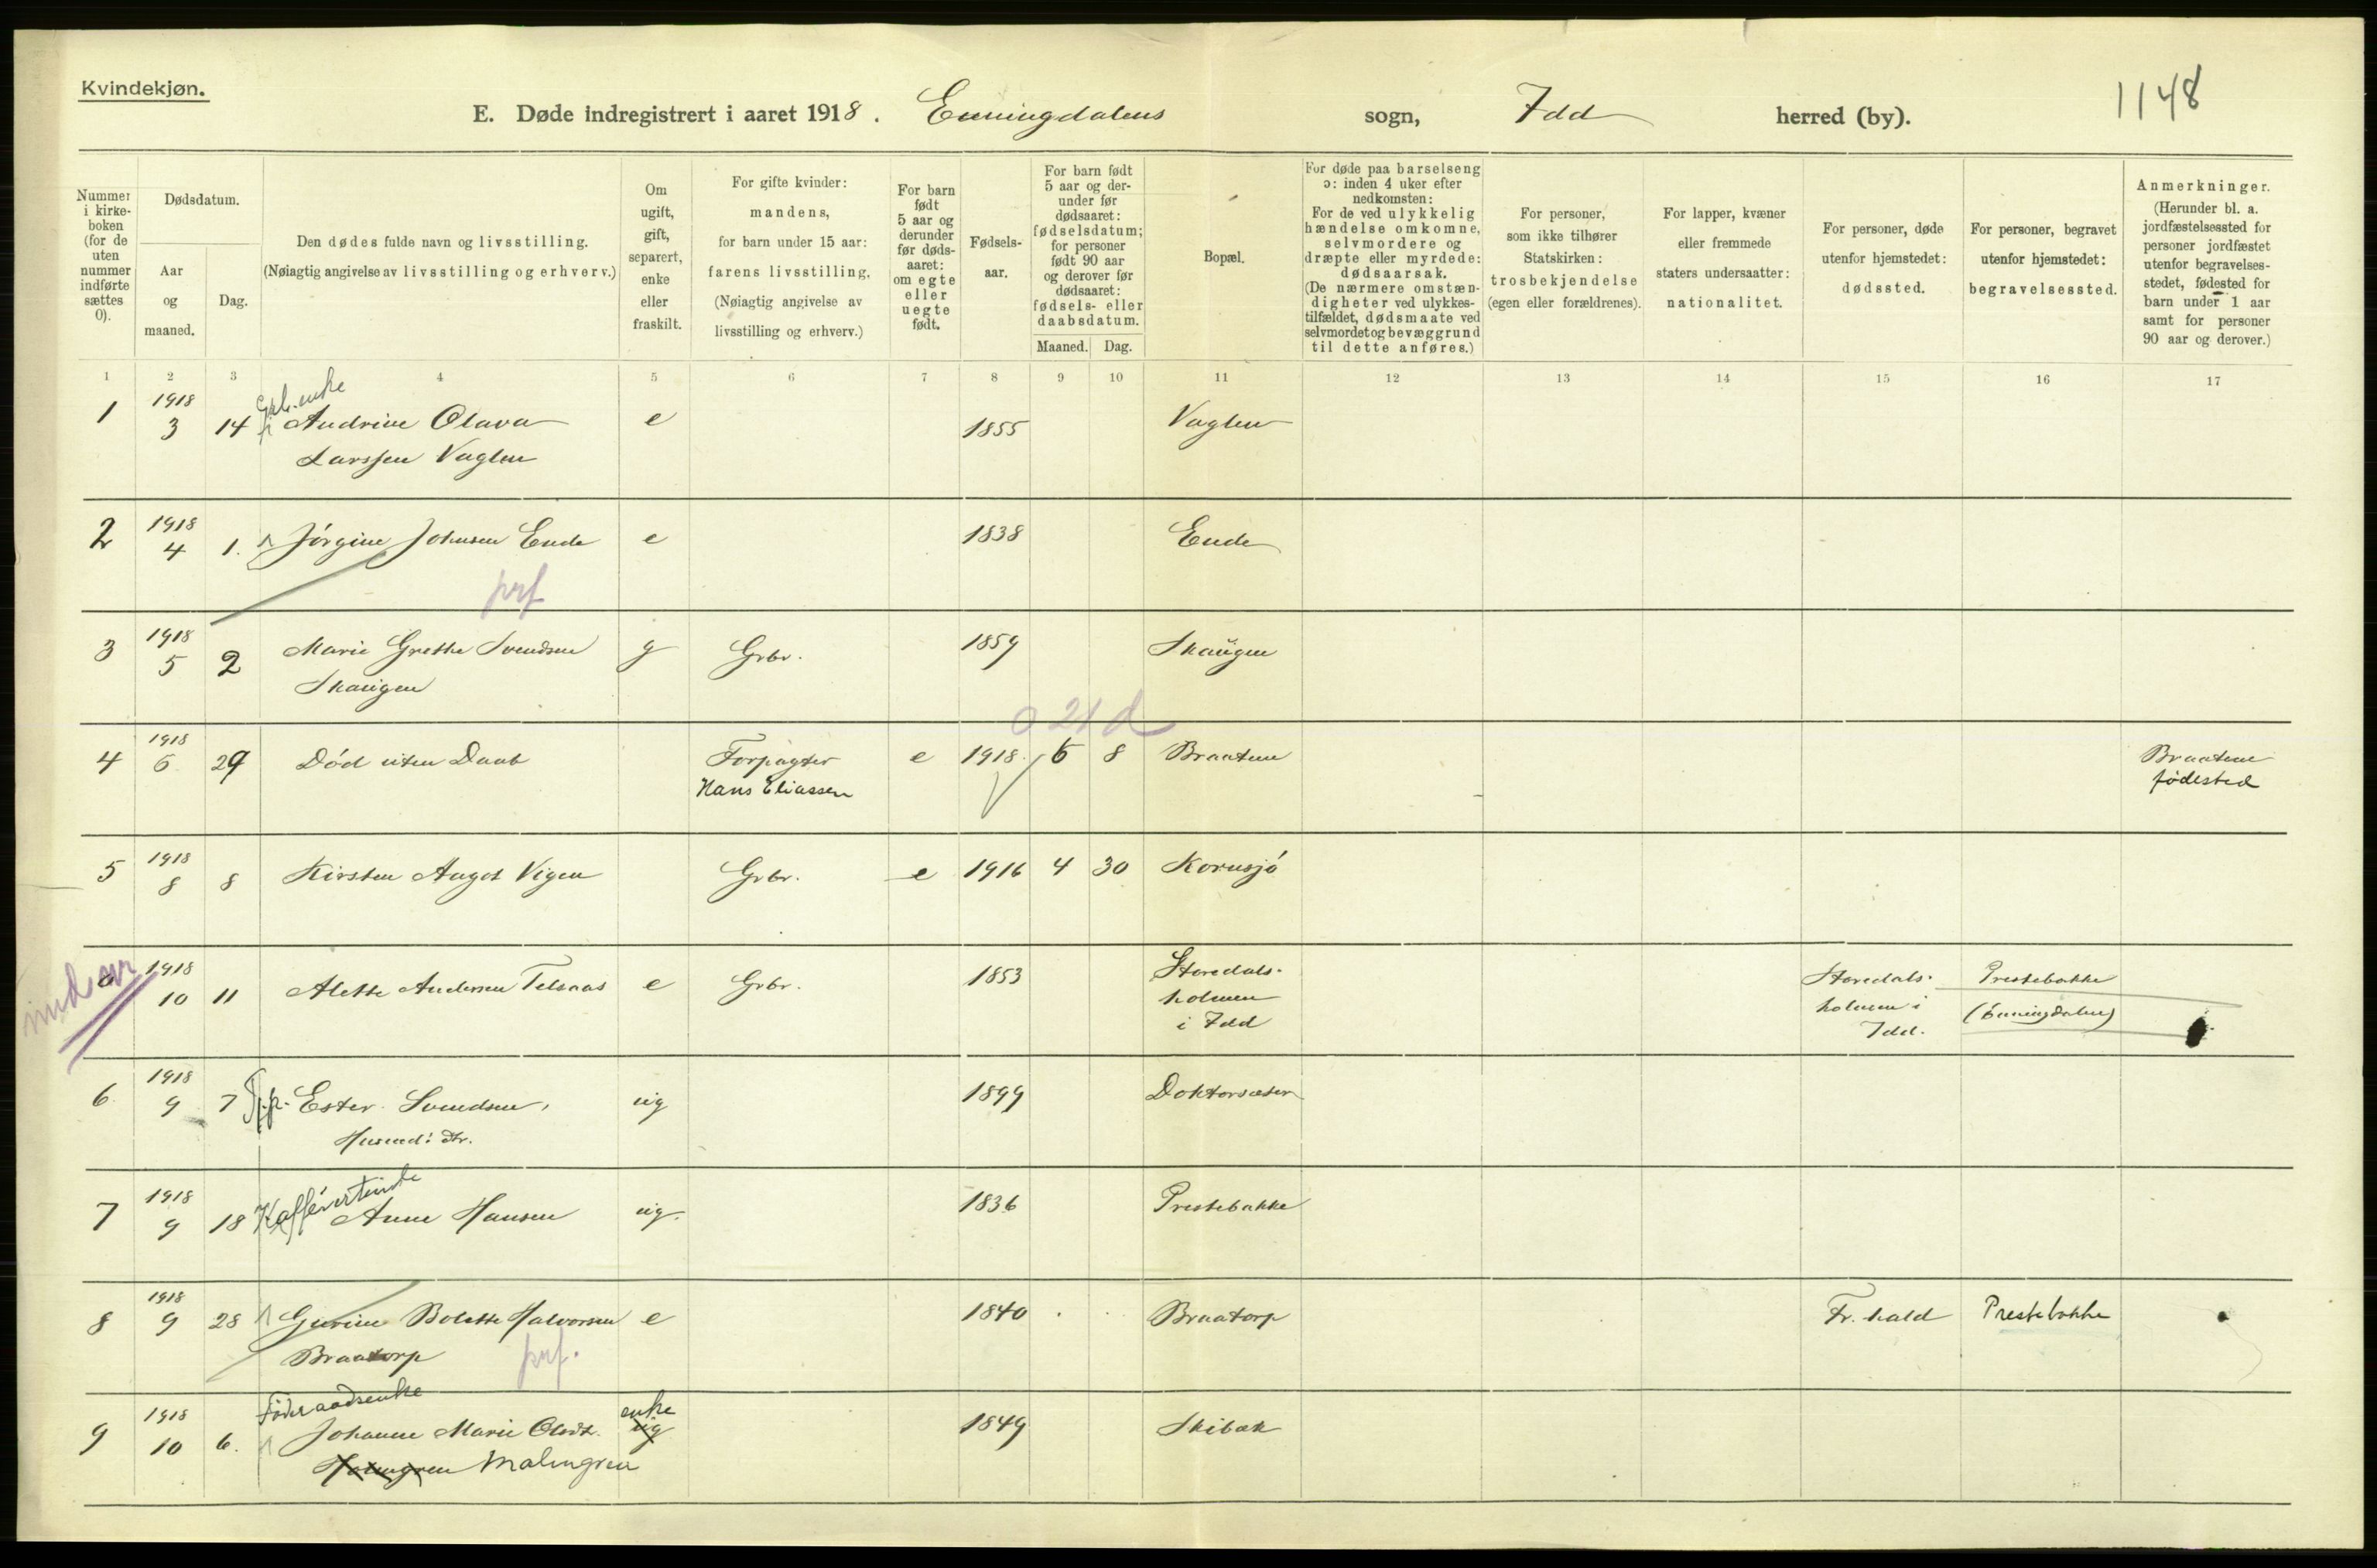 Kvindekjøn.
E. Døde indregistrert i aaret 1918. Enningdalens sogn, Idd herred (by).
1148
Nummer i kirke-boken (for de uten nummer indførte sættes 0).
Dødsdatum.
Aar og maaned.
Dag.
Den dødes fulde navn og livsstilling.
(Nøiagtig angivelse av livsstilling og erhverv.)
Om ugift, gift, separert, enke eller fraskilt.
For gifte kvinder: mandens, for barn under 15 aar: farens livsstilling.
(Nøiagtig angivelse av livsstilling og erhverv.)
For barn født 5 aar og derunder før døds-aaret: om egte eller uegte født.
Fødsels-aar.
For barn født 5 aar og der-under før dødsaaret: fødselsdatum; for personer født 90 aar og derover før dødsaaret: fødsels- eller daabsdatum.
Maaned. Dag.
Bopæl.
For døde paa barselseng ɔ: inden 4 uker efter nedkomsten:
For de ved ulykkelig hændelse omkomne, selvmordere og dræpte eller myrdede: dødsaarsak.
(De nærmere omstæn-digheter ved ulykkes-tilfældet, dødsmaate ved selvmordet og bevæggrund til dette anføres.)
For personer, som ikke tilhører Statskirken: trosbekjendelse (egen eller forældrenes).
For lapper, kvæner eller fremmede staters undersaatter: nationalitet.
For personer, døde utenfor hjemstedet: dødssted.
For personer, begravet utenfor hjemstedet: begravelsessted.
Anmerkninger.
(Herunder bl. a. jordfæstelsessted for personer jordfæstet utenfor begravelses-stedet, fødested for barn under 1 aar samt for personer 90 aar og derover.)
1 2 3 4 5 6 7 8 9 10 11 12 13 14 15 16 17
1 1918 3 14 Andrine Olava e 1855 Vaglen
Larssen Vaglen
2 1918 4 1. Jørgine Johnsen Ende e 1838 Ende
prf
3 1918 5 2 Marie Grethe Svendsen g Grbr. 1859 Skaugen
Skaugen
0 21 d
4 1918 6 29 Død uten Daab Forpagter e 1918 6 8 Braatene Braatene
Hans Eliassen fødested
5 1918 8 8 Kirsten Augot Vigen Grbr. e 1916 4 30 Kornsjø
0 1918 10 11 Alette Andersen e Grbr. 1853 Storedals- Storedals- Prestebakke
holmen holmen i (Enningdalen)
i Idd Idd.
6. 1918 9 7 Ester Svendsen, ug 1899 Doktorsæter
Husmd: dtr.
7 1918 9 18 Kaffévertinde Anne Hansen ug. 1836 Prestebakke
8 1918 9 28 Gurine Bolette Halvorsen e 1840 Braatorp Fr. hald Prestebakke
Braatorp prf.
Føderaadsenke enke
9 1918 10 6. Johanne Marie ug 1849 Skibæk
Holmgren Malmgren